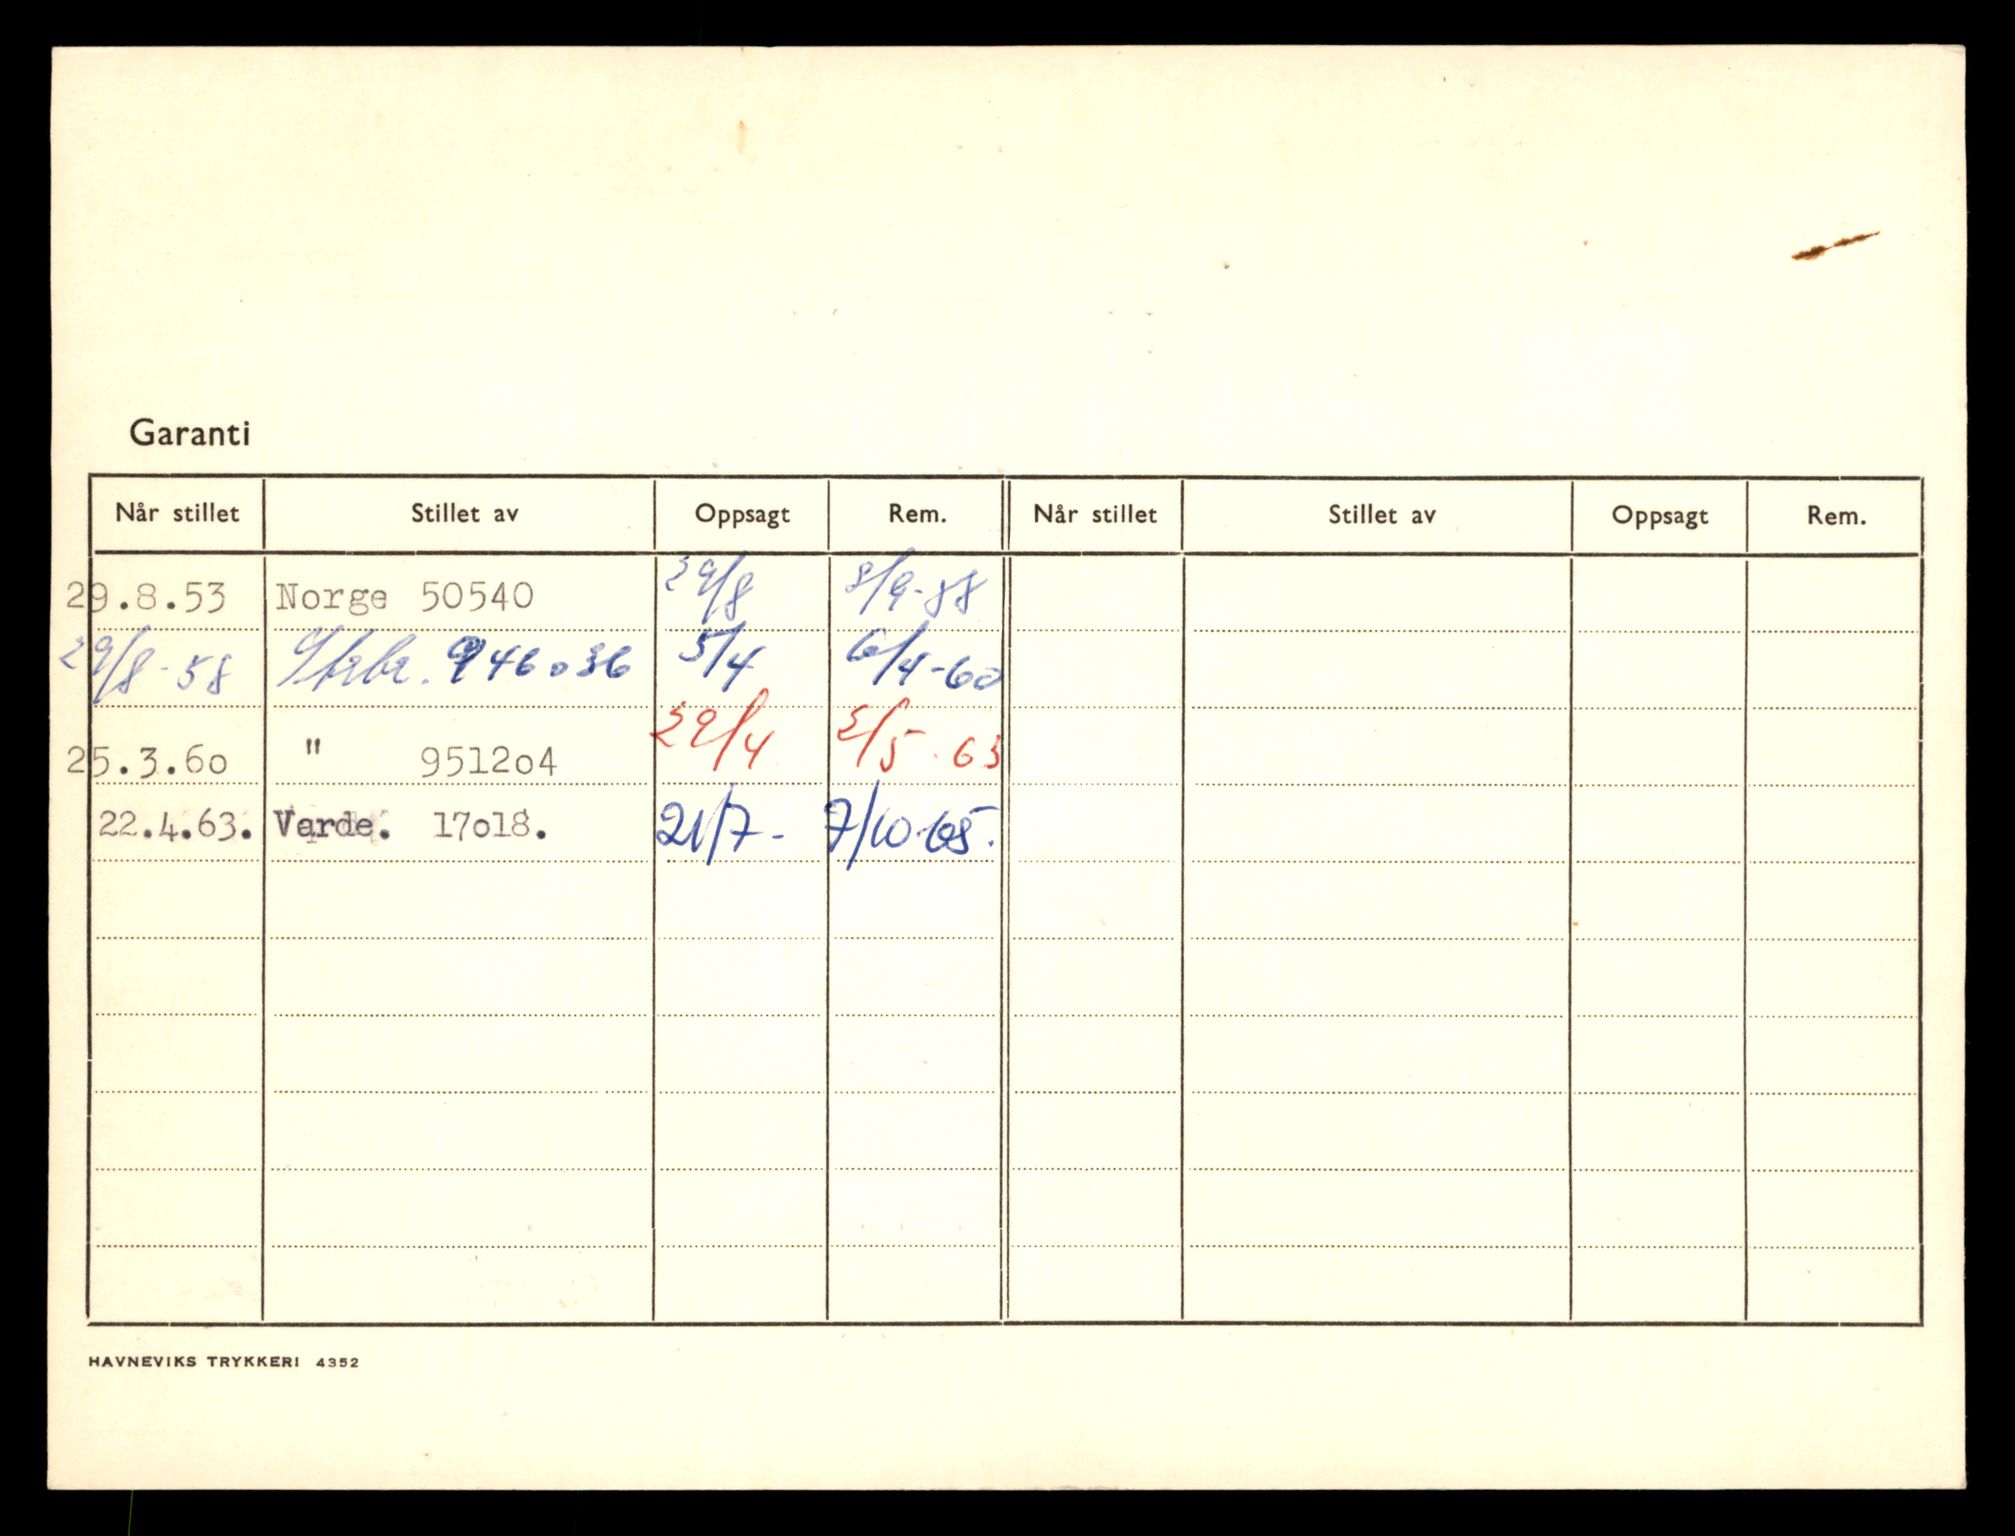 Garanti
Når stillet Stillet av Oppsagt Rem. Når stillet Stillet av Oppsagt Rem.
29.8.53 Norge 50540 29/8 8/9-58
29/8-58 946036 5/4 6/4-60
25.3.60 " 951204 29/4 2/5-63
22.4.63. Varde. 17018. 21/7- 7/10-65.
HAVNEVIKS TRYKKERI 4352